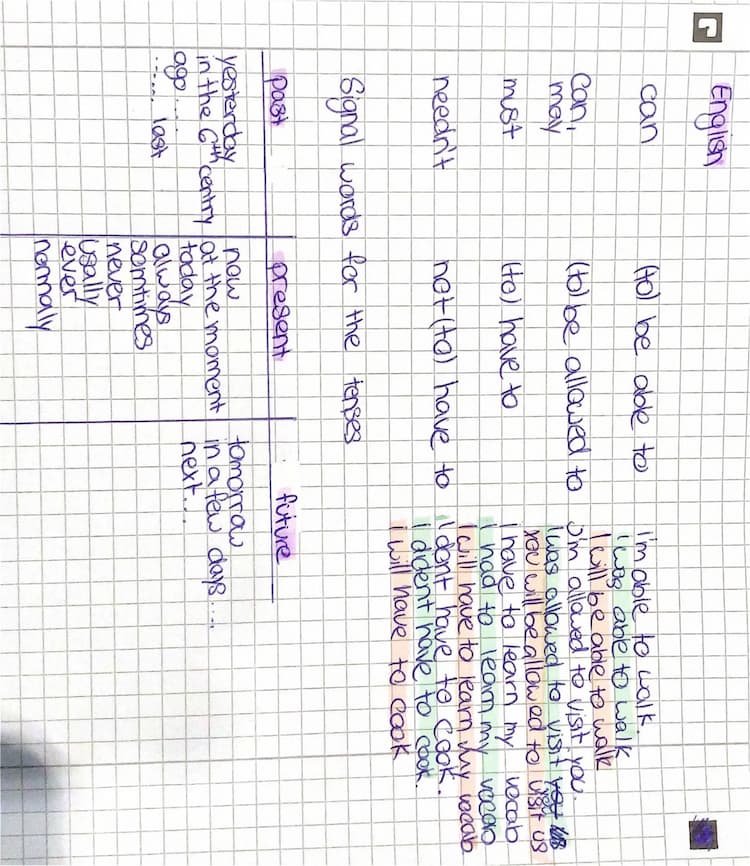 English
can (to) be able to I'm able to walk
I was able to walk
I will be able to walk
Can, may (to) be allowed to I'm allowed to visit you.
I was allowed to visit us
you will be allowed to visit us
must (to) have to I have to learn my vocab
I had to learn my vocab
I will have to learn my vocab
needn't not (to) have to I dont have to cook.
I dident have to cook.
I will have to cook
Signal words for the tenses
past present future
yesterday now tomorrow
in the 6th centry at the moment in a few days ....
ago ..... today next....
...... last always
somtimes
never
usally
ever
normally